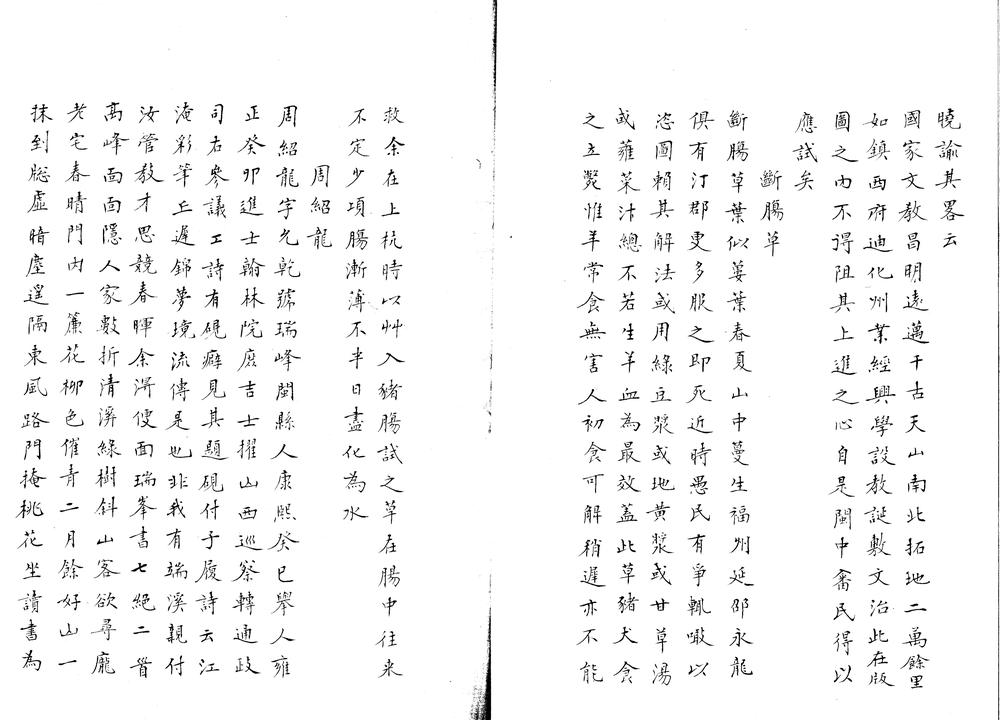 曉諭其畧云
國家文教昌明遠邁千古天山南北拓地二萬餘里
如鎮西府迪化州業經興學設教誕敷文治此在版
圖之內不得阻其上進之心自是閩中畲民得以
應試矣
斷腸草
斷腸草葉似蔞葉春夏山中蔓生福州延邵永龍
俱有汀郡更多服之即死近時愚民有爭輒噉以
恣圖賴其解法或用綠豆漿或地黃漿或甘草湯
或蕹菜汁總不若生羊血為最效蓋此草豬犬食
之立斃惟羊常食無害人初食可解稍遲亦不能
救余在上杭時以艸入豬腸試之草在腸中往来
不定少頃腸漸薄不半日盡化為水
周紹龍
周紹龍字允乾號瑞峰閩縣人康熙癸巳舉人雍
正癸卯進士翰林院庶吉士擢山西巡察轉通政
司右參議工詩有硯癖見其題硯付于履詩云江
淹彩筆丘遲錦夢境流傳是也非我有端溪親付
汝管教才思競春暉余淂便面瑞峯書七絕二首
高峰面面隱人家數折清溪綠樹斜山客欲尋龐
老宅春晴門內一簾花柳色催青二月餘好山一
抹到牎虛暗塵遥隔東風路門掩桃花坐讀書為